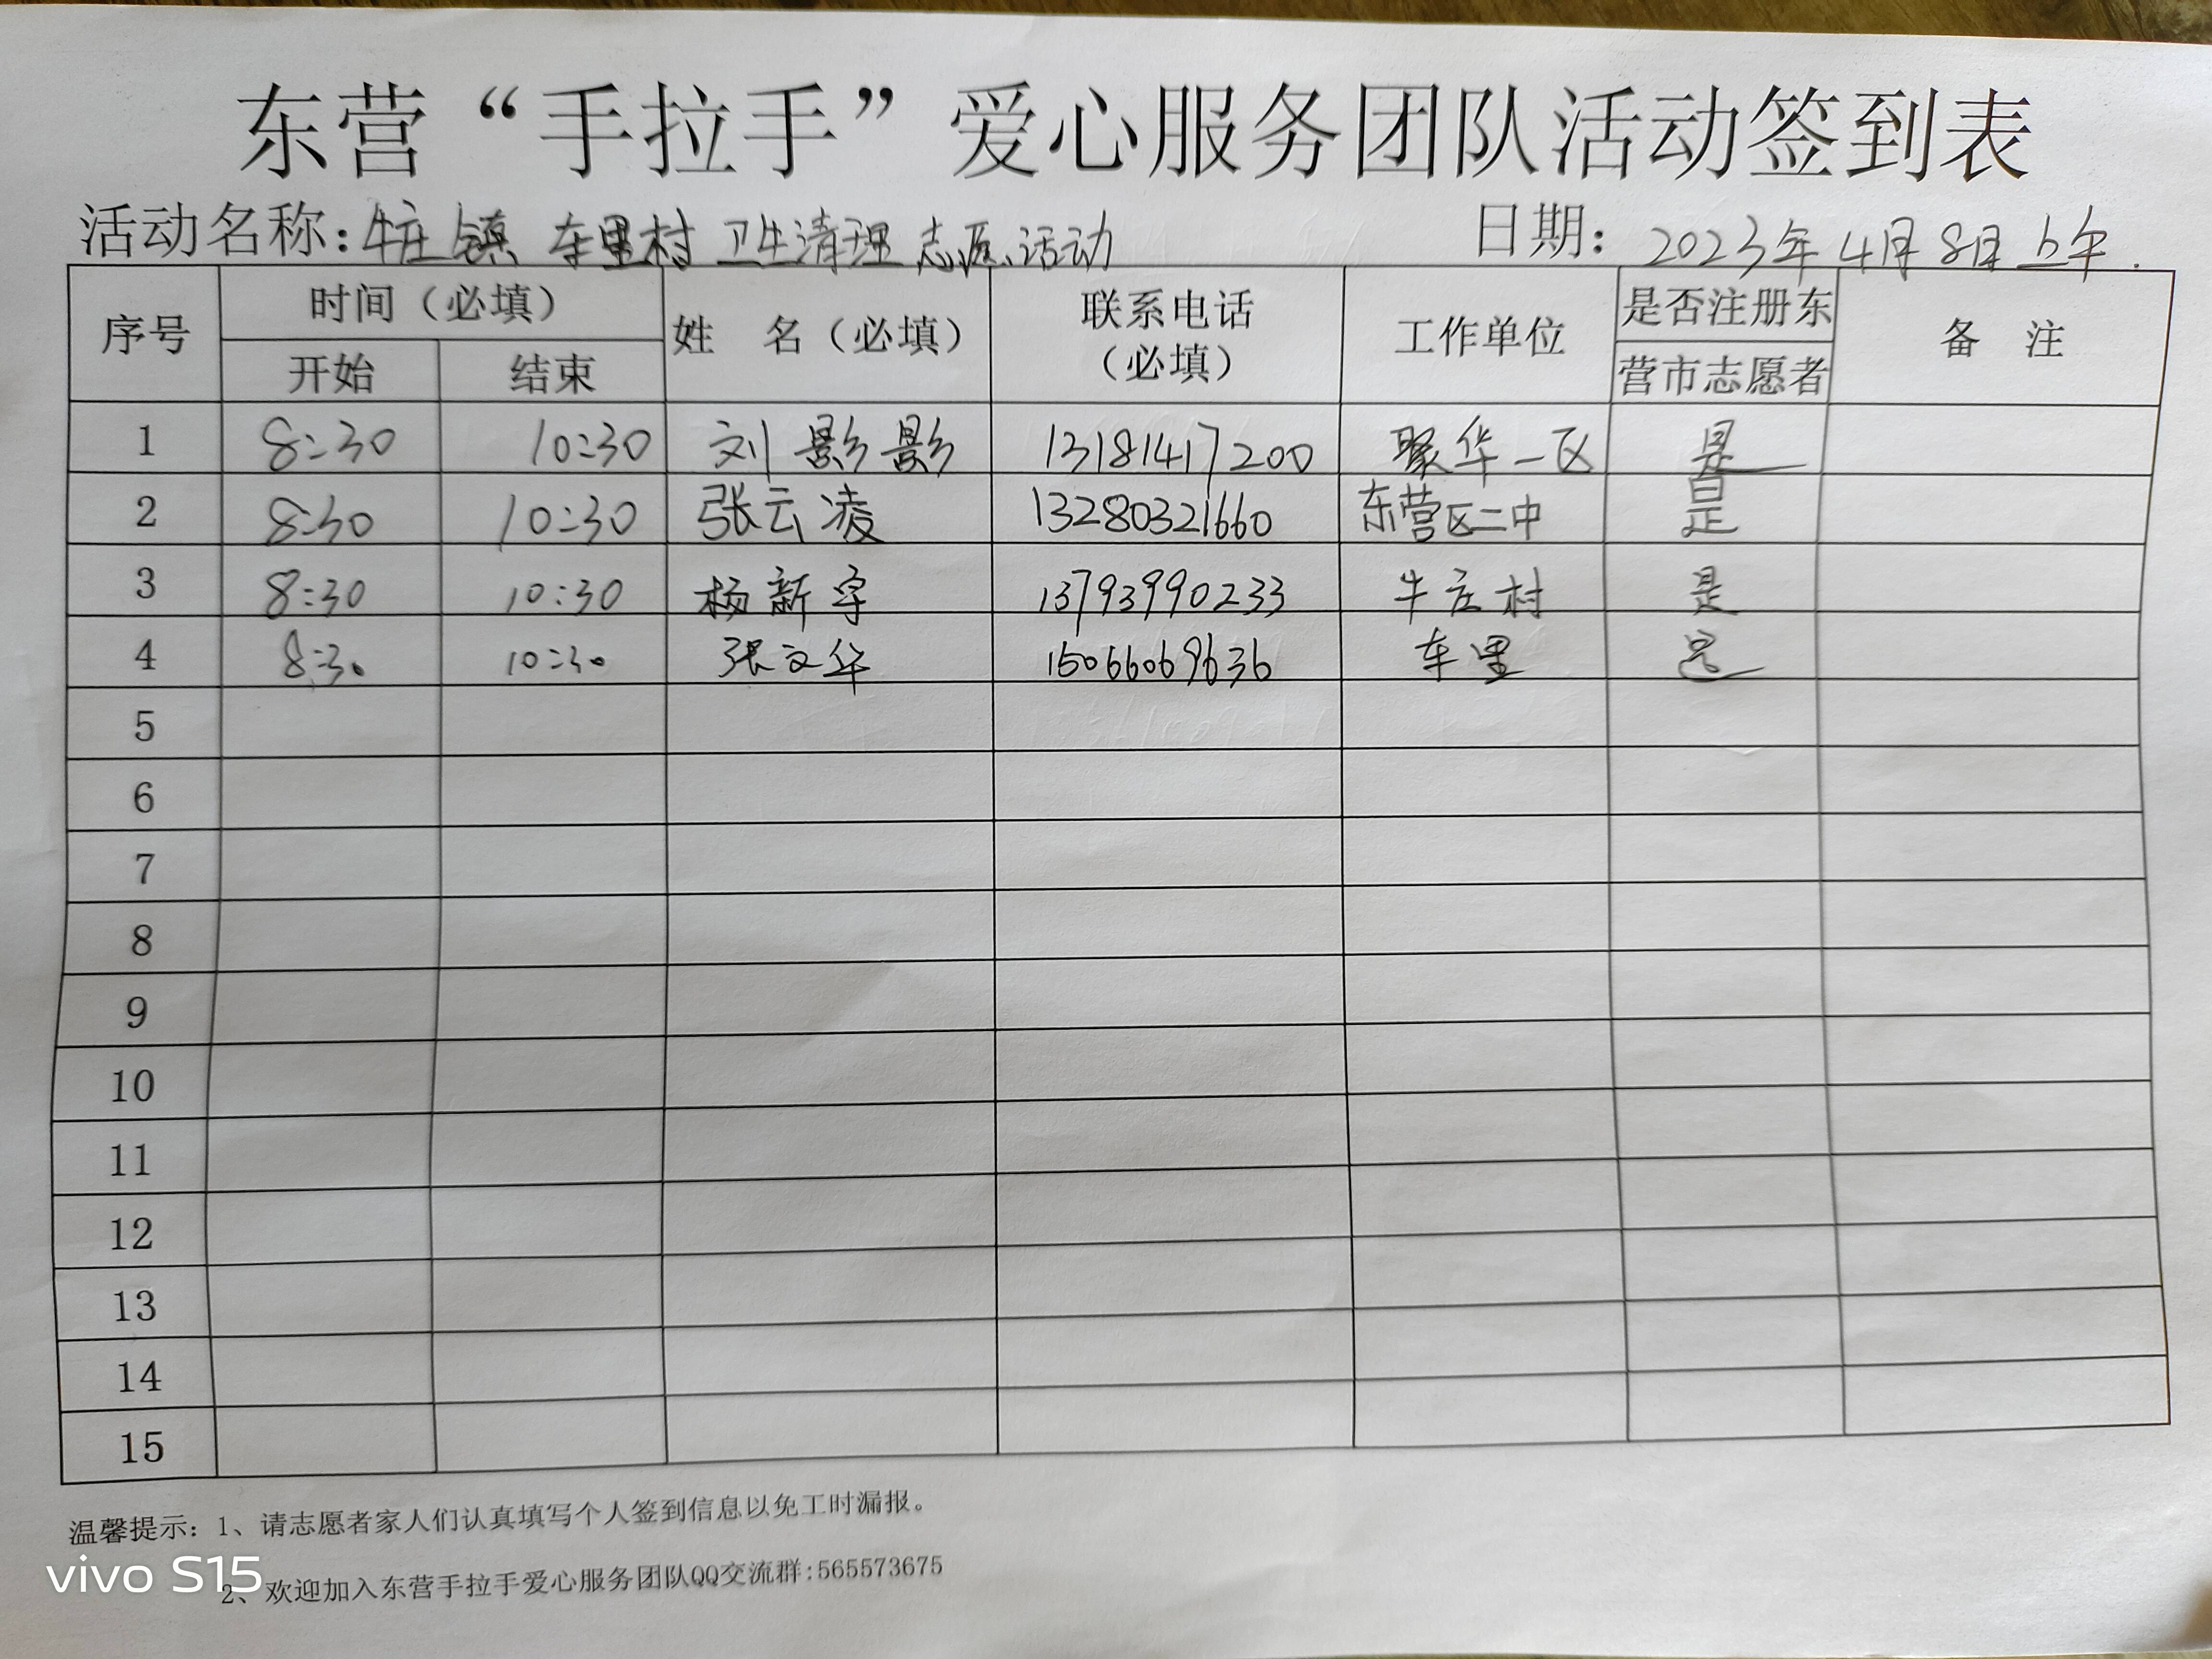 东营“手拉手”爱心服务团队活动签到表
活动名称:牛庄镇 车里村 卫生清理志愿活动 日期: 2023年4月8日上午.
序号 时间（必填） 姓 名（必填） 联系电话（必填） 工作单位 是否注册东营市志愿者 备 注
开始 结束
1 8:30 10:30 刘影影 13181417200 聚华一区 是
2 8:30 10:30 张云凌 13280321660 东营区二中 是
3 8:30 10:30 杨新字 13793990233 牛庄村 是
4 8:30 10:30 张文华 15066069636 车里 是
5
6
7
8
9
10
11
12
13
14
15
温馨提示：1、请志愿者家人们认真填写个人签到信息以免工时漏报。
2、欢迎加入东营手拉手爱心服务团队QQ交流群:565573675
vivo S15